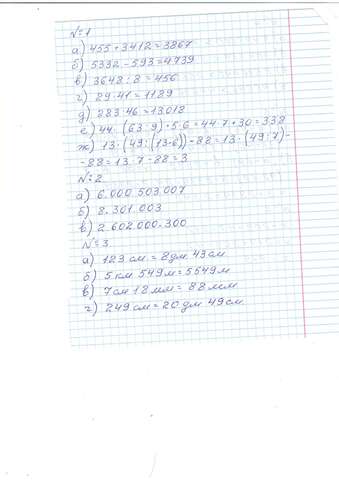 №1
а) 455+3412=3867
б) 5332-593=4739
в) 3648:8=456
г) 29·41=1189
д) 283·46=13018
е) 44·(63:9)+5·6=44·7+30=338
ж) 13·(49:(13-6))-88=13·(49:7)-
-88=13·7-88=3
№2
а) 6.000 503.007
б) 8.301.003
в) 2.602.000.300
№3
а) 123 см = 8 дм 43 см
б) 5 км 549 м = 5549 м
в) 7 см 18 мм = 88 мм
г) 249 см = 20 дм 49 см